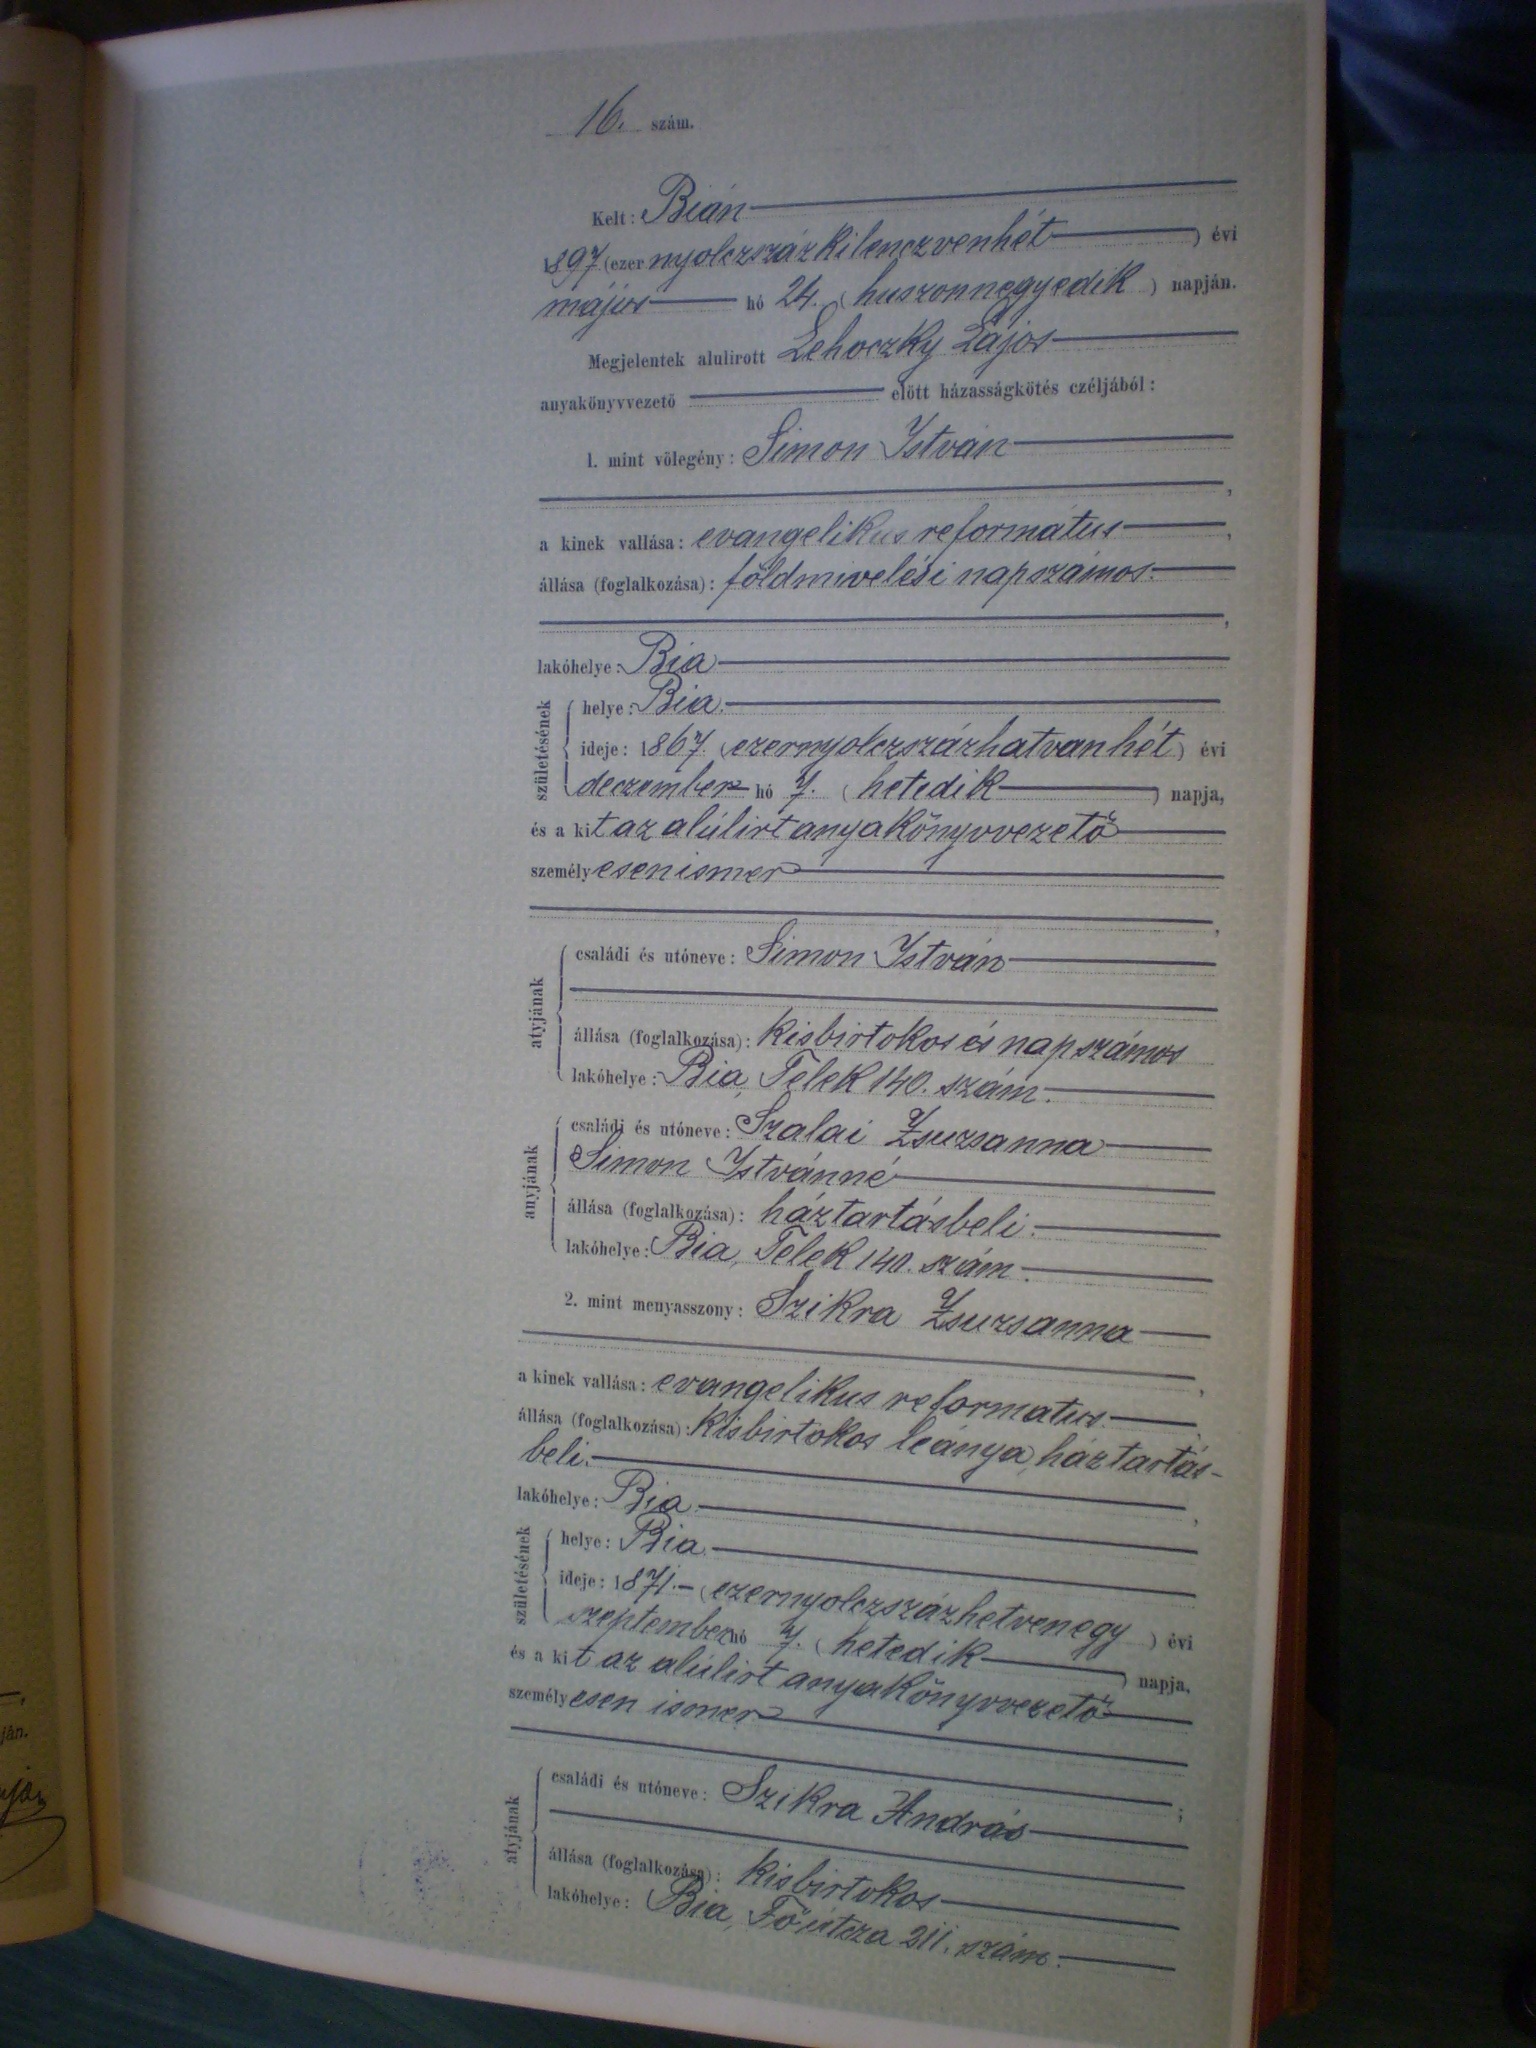 16. szám.
Kelt: Bián
1897 (ezernyolczszázkilenczvenhét) évi
május hó 24. (huszonnegyedik) napján.
Megjelentek alulirott Lehoczky Lajos
anyakönyvvezető előtt házasságkötés czéljából:
1. mint völegény: Simon István
,
a kinek vallása: evangelikus református,
állása (foglalkozása): földmivelési napszámos.
,
lakóhelye: Bia
születésének
helye: Bia.
ideje: 1867. (ezernyolczszázhatvanhét) évi
deczember hó 7. (hetedik) napja,
és a kit az alúlirt anyakönyvvezető
személyesen ismer
,
atyjának
családi és utóneve: Simon István
állása (foglalkozása): kisbirtokos és napszámos
lakóhelye: Bia, Telek 140. szám.
anyjának
családi és utóneve: Szalai Zsuzsanna
Simon Istvánné
állása (foglalkozása): háztartásbeli.
lakóhelye: Bia, Telek 140. szám.
2. mint menyasszony: Szikra Zsuzsanna
,
a kinek vallása: evangelikus reformatus.,
állása (foglalkozása): kisbirtokos leánya, háztartás-
beli.
,
lakóhelye: Bia.
születésének
helye: Bia.
ideje: 1871.- (ezernyolczszázhetvenegy) évi
szeptember hó 7. (hetedik) napja,
és a kit az alúlirt anyakönyvvezető
személyesen ismer
;
atyjának
családi és utóneve: Szikra András
állása (foglalkozása): kisbirtokos
lakóhelye: Bia, Főútcza 211. szám.
ján.